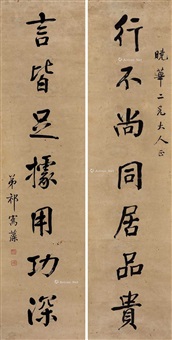 曉華二兄大人正
行不尚同居品貴
言皆足據用功深
弟祁寯藻